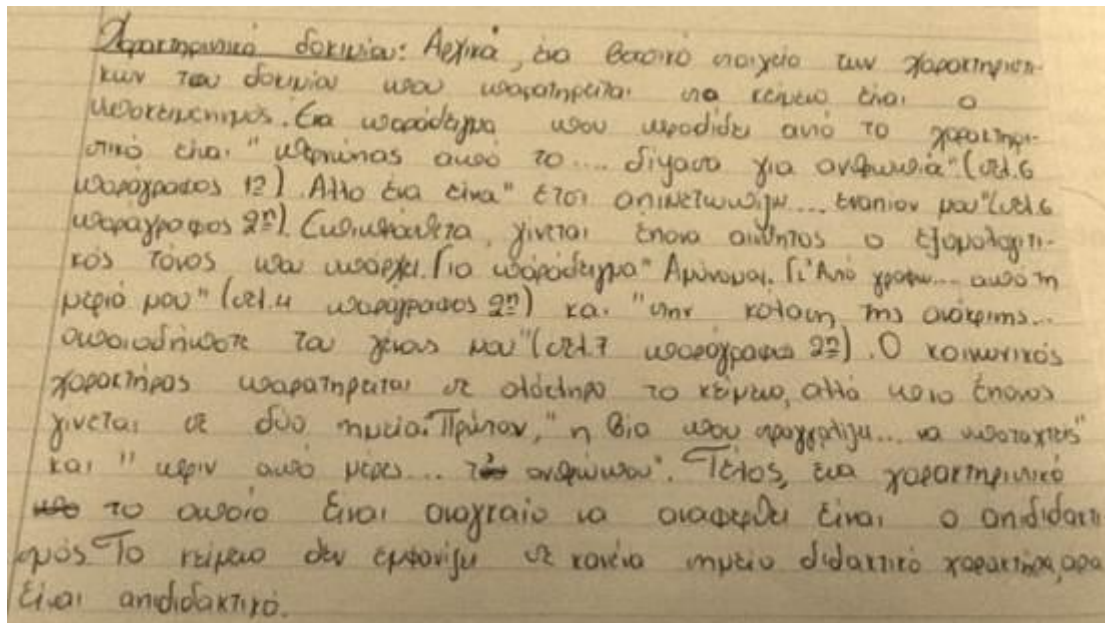 Χαρακτηριστικά δοκιμίου: Αρχικά, ένα βασικό στοιχείο των χαρακτηριστι-
κών του δοκιμίου που παρατηρείται στο κείμενο είναι ο
υποκειμενισμός. Ένα παράδειγμα που προδίδει αυτό το χαρακτηρι-
στικό είναι "περπώντας από το .... δίψασα για ανθρωπιά" (σελ.6
παράγραφος 1η). Άλλο ένα είναι "έτσι αντιμετωπίζω... εναντίον μου" (σελ.6
παράγραφος 2η). Επιπρόσθετα, γίνεται έντονα αισθητός ο εξομολογητι-
κός τόνος που υπάρχει. Για παράδειγμα "Αμύνομαι. Γι' Αυτό γράφω.... από τη
μεριά μου" (σελ.4 παράγραφος 2η) και "στην κόλαση της ανάκρισης...
οποιοδήποτε του γένους μου" (σελ.7 παράγραφο 2η). Ο κοινωνικός
χαρακτήρας παρατηρείται σε ολόκληρο το κείμενο, αλλά πιο έντονος
γίνεται σε δύο σημεία. Πρώτον, "η βία που στραγγαλίζει... να υποταχτείς"
και "πριν από μέρες... ανθρώπου". Τέλος, ένα χαρακτηριστικό
το οποίο είναι αναγκαίο να αναφερθεί είναι ο αντιδιδακτι
σμός. Το κείμενο δεν εμφανίζει σε κανένα σημείο διδακτικό χαρακτήρα, άρα
είναι αντιδιδακτικό.